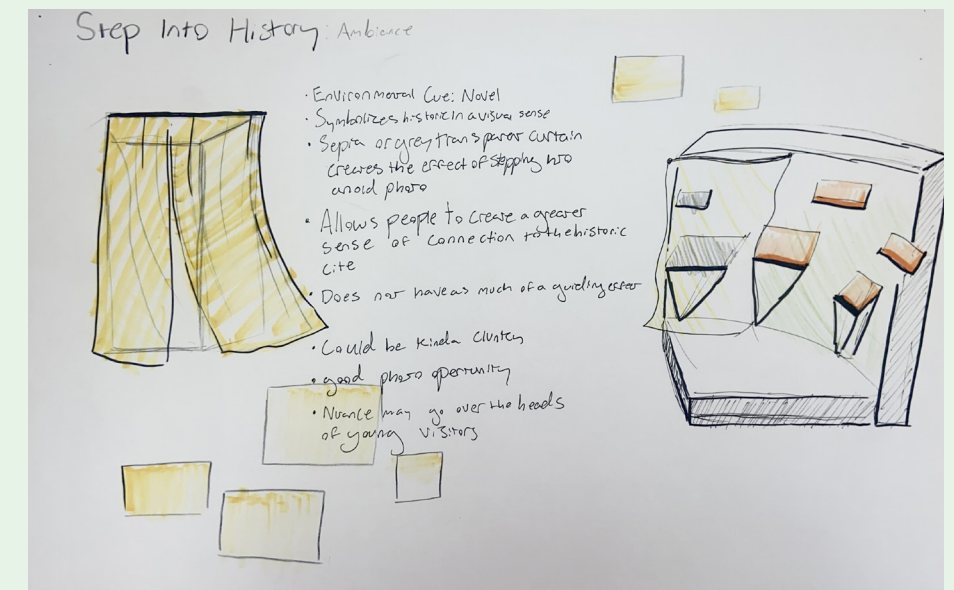 Step Into History: Ambience
• Environmental Cue: Novel
• Symbolizes historic in a visual sense
• Sepia or grey transparent curtain
creates the effect of stepping into
an old photo
• Allows people to create a greater
sense of connection to the historic
cite
• Does not have as much of a guiding effect
• Could be kinda
• good photo
• Nuance may go over the heads
of young visitors